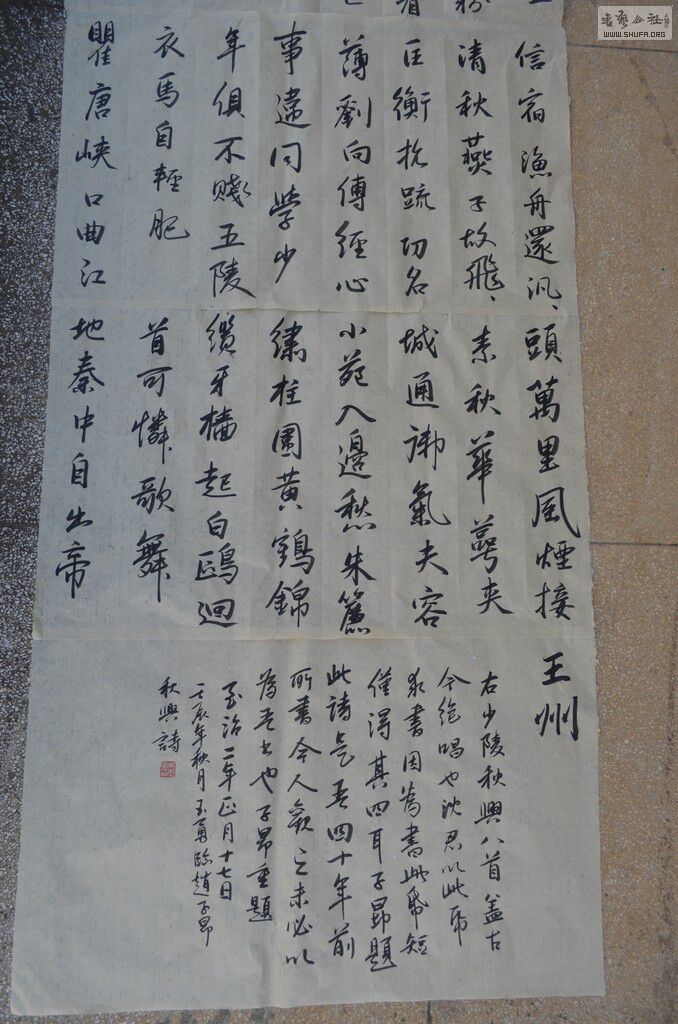 信宿漁舟還汎、
清秋燕子故飛、
匡衡抗疏功名
薄劉向傳經心
事違同學少
年俱不賤五陵
衣馬自輕肥
瞿唐峽口曲江
頭萬里風煙接
素秋華萼夾
城通御氣夫容
小苑入邊愁朱簾
繡柱圍黃鶴錦
纜牙檣起白鷗迴
首可憐歌舞
地秦中自古帝
王州
右少陵秋興八首蓋古
今絕唱也沈君以此紙
求書因為書此紙短
僅得其四耳子昂題
此詩是吾四十年前
所書今人觀之未必以
為吾書也子昂重題
至治二年正月十七日
壬辰年秋月玉勇臨趙子昂
秋興詩
WWW.SHUFA.ORG